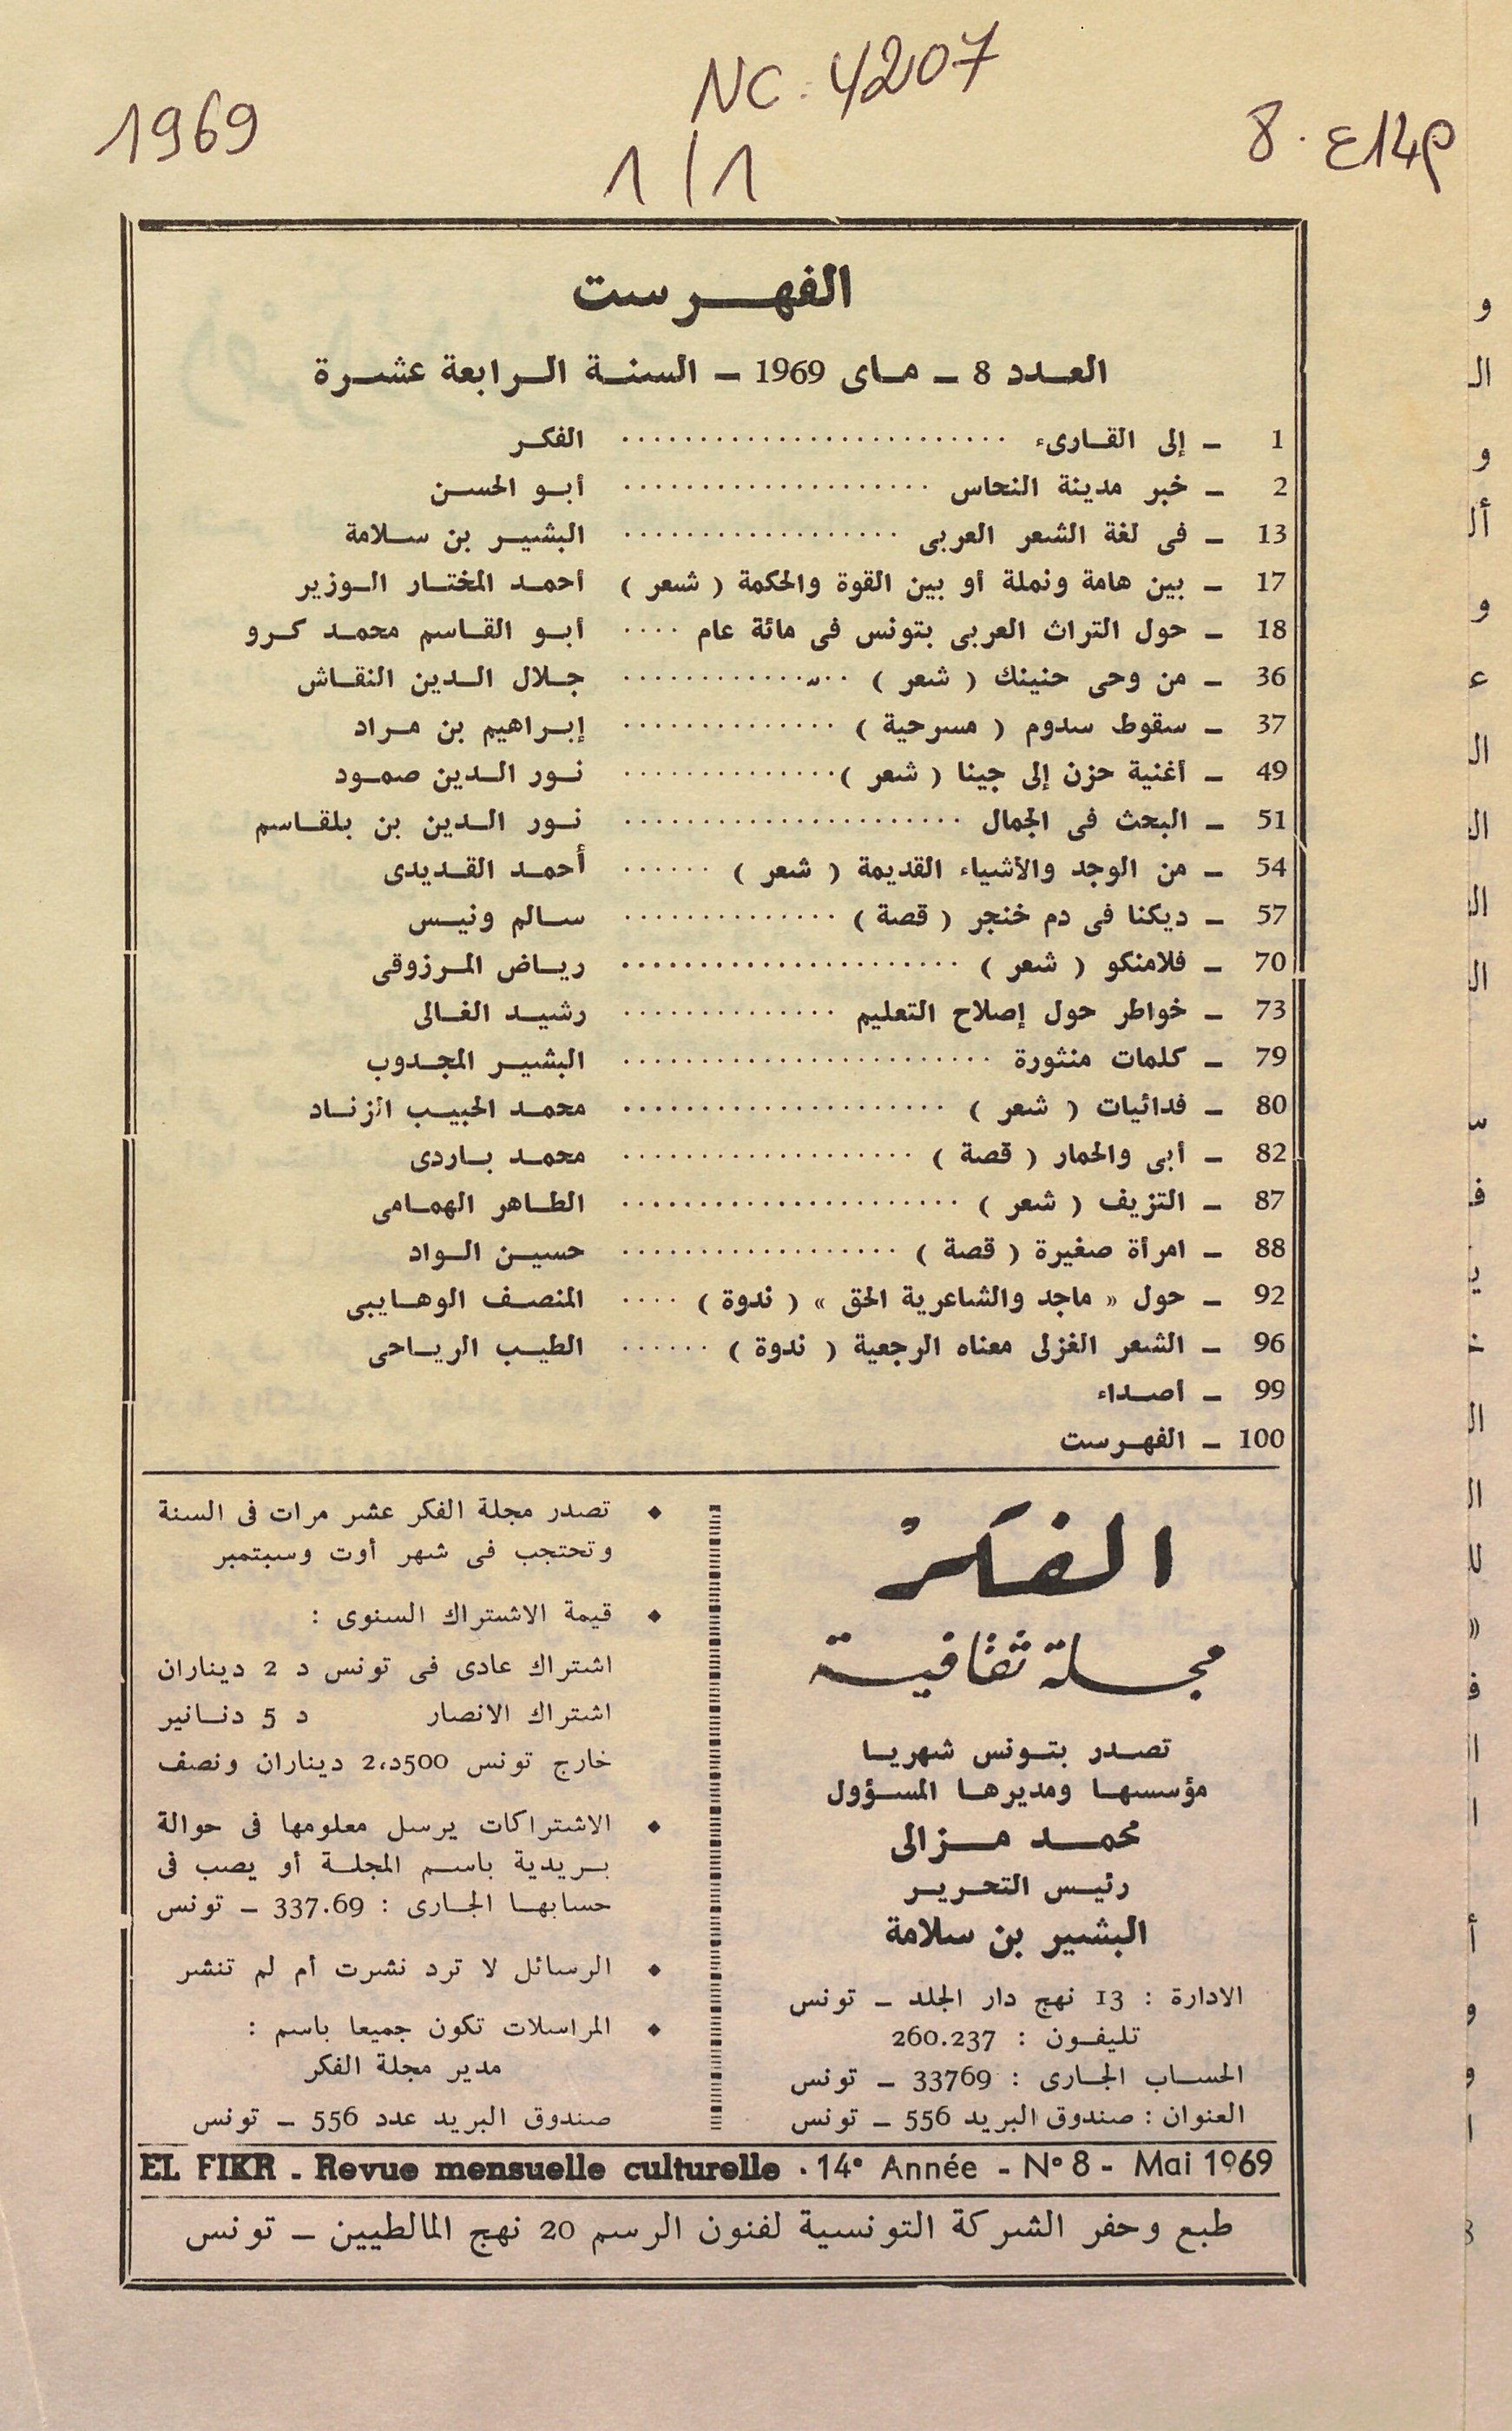 NC. 4207
1969
1/1
8. ع14م
الفهرست
العدد 8 ـ ماى 1969 ـ السنة الرابعة عشرة
1 ـ إلى القارىء .......................... الفكر
2 ـ خبر مدينة النحاس .................... أبو الحسن
13 ـ فى لغة الشعر العربى .................. البشير بن سلامة
17 ـ بين هامة ونملة أو بين القوة والحكمة ( شعر ) أحمد المختار الوزير
18 ـ حول التراث العربى بتونس فى مائة عام .... أبو القاسم محمد كرو
36 ـ من وحى حنينك ( شعر ) ............... جلال الدين النقاش
37 ـ سقوط سدوم ( مسرحية ) .............. إبراهيم بن مراد
49 ـ أغنية حزن إلى جينا ( شعر ) .............. نور الدين صمود
51 ـ البحث فى الجمال ...................... نور الدين بن بلقاسم
54 ـ من الوجد والأشياء القديمة ( شعر ) ...... أحمد القديدى
57 ـ ديكنا فى دم خنجر ( قصة ) .............. سالم ونيس
70 ـ فلامنكو ( شعر ) ...................... رياض المرزوقى
73 ـ خواطر حول إصلاح التعليم .............. رشيد الغالى
79 ـ كلمات منثورة ........................ البشير المجدوب
80 ـ فدائيات ( شعر ) ..................... محمد الحبيب الزناد
82 ـ أبى والحمار ( قصة ) ................... محمد باردى
87 ـ التزيف ( شعر ) ...................... الطاهر الهمامى
88 ـ امرأة صغيرة ( قصة ) .................. حسين الواد
92 ـ حول « ماجد والشاعرية الحق » ( ندوة ) .... المنصف الوهايبى
96 ـ الشعر الغزلى معناه الرجعية ( ندوة ) ...... الطيب الرياحى
99 ـ أصداء
100 ـ الفهرست
الفكر
مجلة ثقافية
تصدر بتونس شهريا
مؤسسها ومديرها المسؤول
محمد مزالى
رئيس التحرير
البشير بن سلامة
الادارة : 13 نهج دار الجلد ـ تونس
تليفون : 260.237
الحساب الجارى : 33769 ـ تونس
العنوان : صندوق البريد 556 ـ تونس
♦ تصدر مجلة الفكر عشر مرات فى السنة
وتحتجب فى شهر أوت وسبتمبر
♦ قيمة الاشتراك السنوى :
اشتراك عادى فى تونس د 2 ديناران
اشتراك الانصار د 5 دنانير
خارج تونس 500د،2 ديناران ونصف
♦ الاشتراكات يرسل معلومها فى حوالة
بريدية باسم المجلة أو يصب فى
حسابها الجارى : 337.69 ـ تونس
♦ الرسائل لا ترد نشرت أم لم تنشر
♦ المراسلات تكون جميعا باسم :
مدير مجلة الفكر
صندوق البريد عدد 556 ـ تونس
EL FIKR - Revue mensuelle culturelle . 14° Année - N° 8 - Mai 1969
طبع وحفر الشركة التونسية لفنون الرسم 20 نهج المالطيين ـ تونس